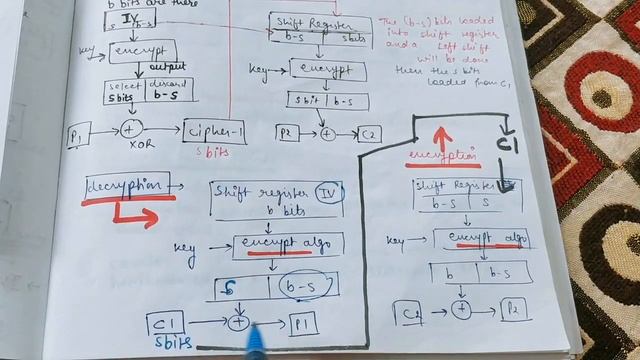 b bits are there
IV
s b-s
key
encrypt
output
select discard
sbits b-s
P1
+
XOR
Cipher-1
sbits
Shift Register
b-s sbits
key
encrypt
sbit b-s
P2
+
C2
The (b-s) bits loaded
into shift register
and a left shift
will be done
then the s bits
loaded from C1
decryption
Shift register IV
b bits
key
encrypt algo
b-s
C1
sbits
+
P1
encryption
C1
Shift Register
b-s s
key
encrypt algo
b b-s
C2
+
P2